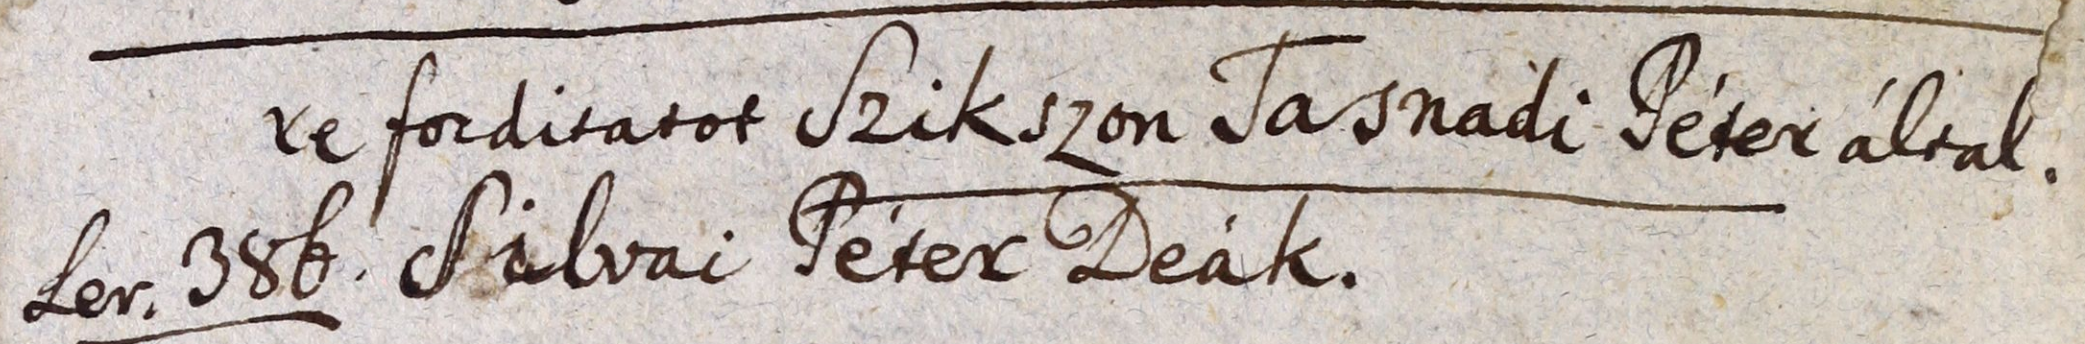 re forditatot Szikszon Tasnádi Péter által.
Lev. 386. Silvai Péter Deák.